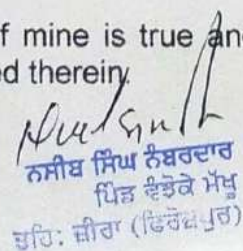 f mine is true and
ed therein.
ਨਸੀਬ ਸਿੰਘ ਨੰਬਰਦਾਰ
ਪਿੰਡ ਮੱਖੂ
ਤਹਿ: ਜ਼ੀਰਾ (ਫਿਰੋਜ਼ਪੁਰ)